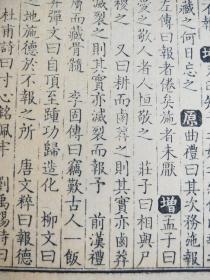 藏之何日忘之 原 曲禮曰其次務施報
左傳曰報者倦矣施者未厭 增 孟子曰
愛之敬人者人恒敬之 莊子曰相與尸
稷之 又曰耕而鹵莽之則其實亦鹵莽
滅裂之則其實亦滅裂而報予 前漢禮
而藏骨髓 李固傳曰竊歎古人一飯
弁彈文曰自頂至踵功歸造化 柳文曰
之地施德於不報之所 唐文粹曰報德
杜甫詩曰寸心銘佩牢 劉禹錫詩曰